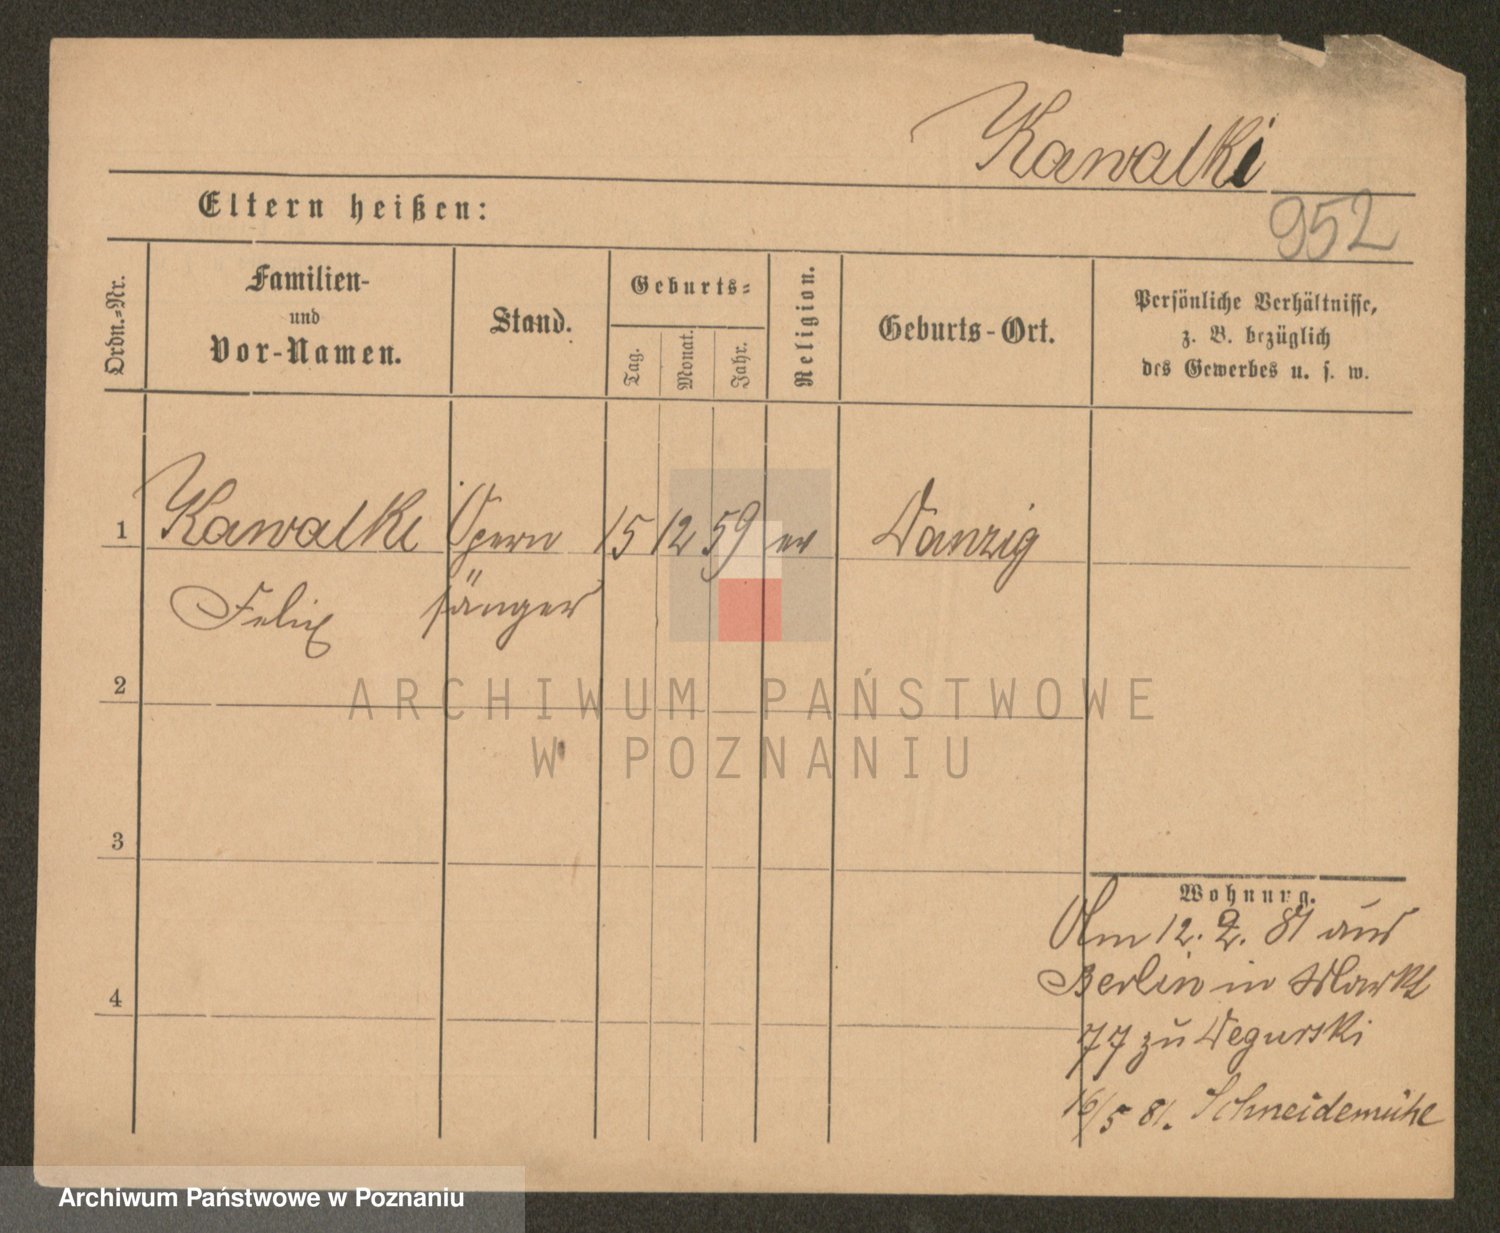 Kawalki
952
Eltern heißen:
Ordn.-Nr.
Familien-
und
Vor-Namen.
Stand.
Geburts-
Tag.
Monat.
Jahr.
Religion.
Geburts-Ort.
Persönliche Verhältnisse,
z. B. bezüglich
des Gewerbes u. s. w.
1 Kawalki Opern 15 12 59 ev Danzig
Felix sänger
2
ARCHIWUM PAŃSTWOWE
W POZNANIU
3
Wohnung.
Am 12. 2. 81 aus
Berlin in Markt
77 zu Degurski
4
16/5 81. Schneidemühl
Archiwum Państwowe w Poznaniu